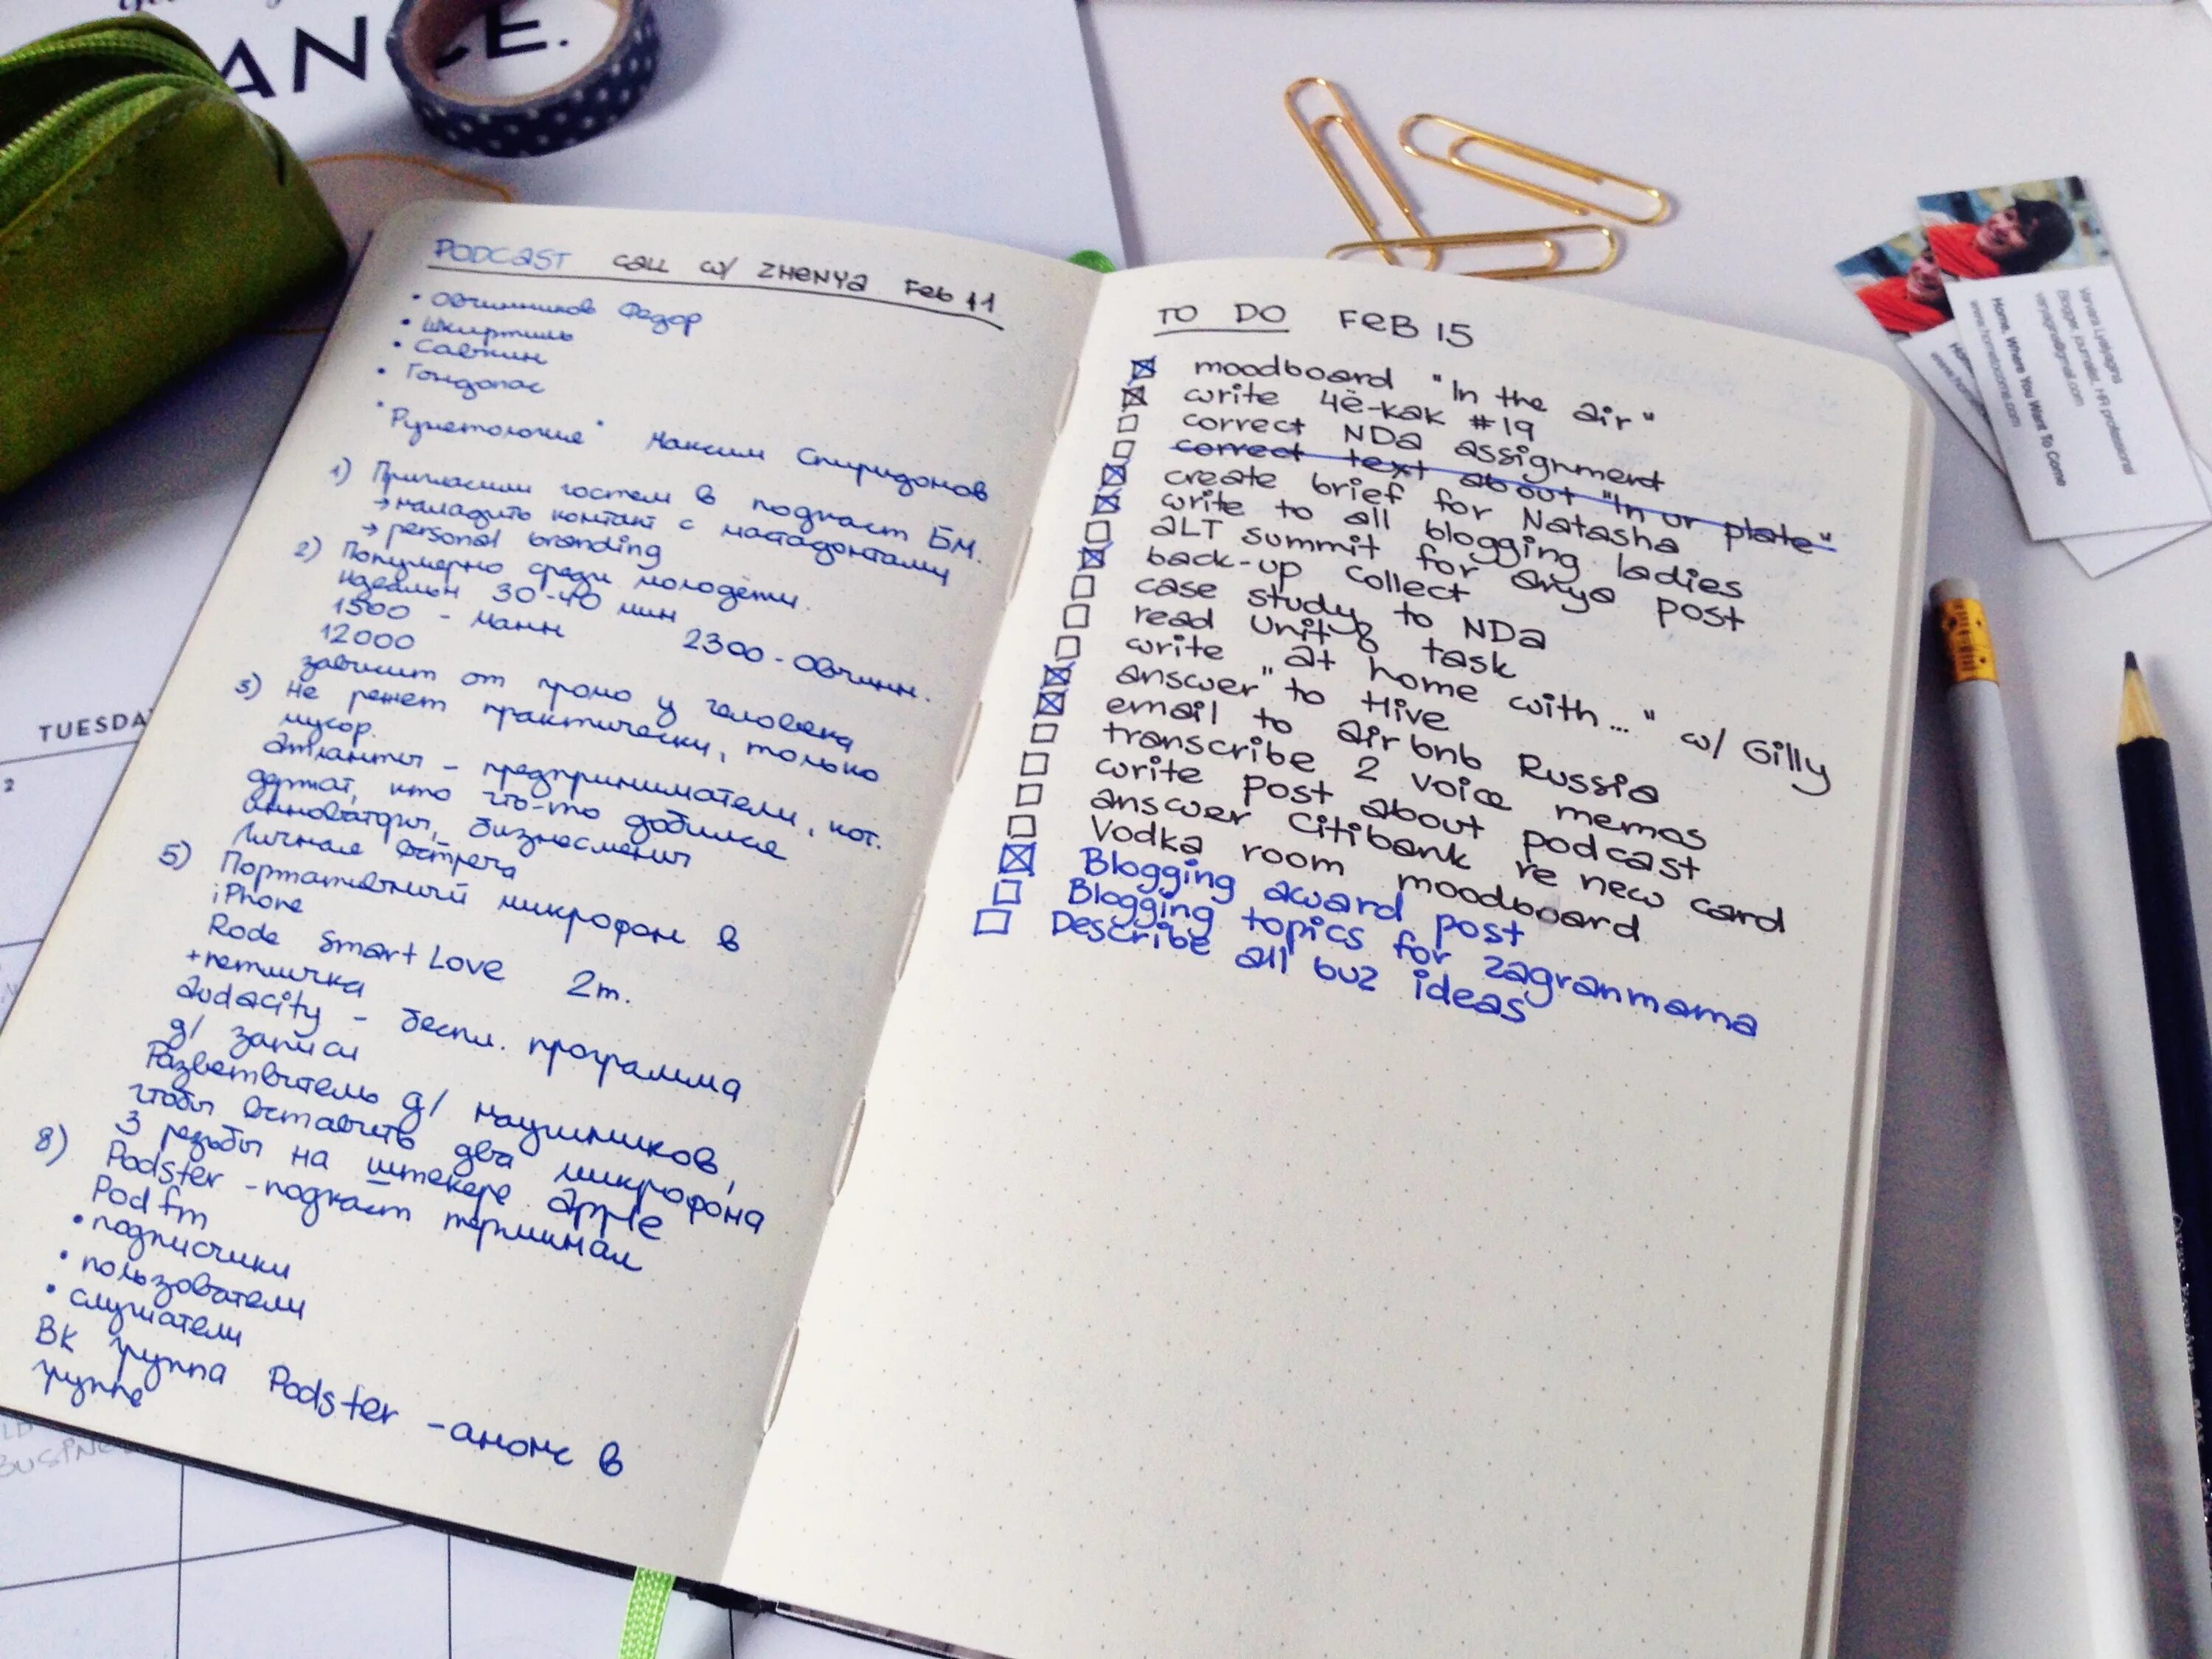 ANCE.
PODCAST call w/ ZHENYA Feb 11
• Овчинников Федор
• Шкиртиль
• Савкин
• Гандапас
"Рунетология" Максим Спиридонов
1) Пригласили гостем в подкаст БМ.
→ наладить контакт с мастадонтами
→ personal branding
2) Популярно среди молодёжи.
идеальн 30-40 мин
1500 - манн 2300 - Овчинн.
12000
зависит от промо у человека
3) Не режет практически, только
мусор.
Атланты - предприниматели, кот.
думат, кто что-то добился
инноваторы, бизнесмены
Личная встреча
5) Портативный микрофон в
iPhone
Rode smart Love 2m.
+петличка
audacity - беспл. программа
д/ записи
Разветвитель д/ наушников,
чтобы вставить два микрофона
3 резьбы на штекере apple
8) Podster - подкаст терминал
Pod fm
• подписчики
• пользователи
• слушатели
ВК группа Podster - анонс в
группе
TO DO FEB 15
moodboard "In the air"
write Чё-как #19
correct NDa assignment
correct text about "In ur plate"
create brief for Natasha
write to all blogging ladies
aLT summit for anya post
back-up collect
case study to NDa
read Unit 8 task
write "at home with..." w/ Gilly
answer to Hive
email to airbnb Russia
transcribe 2 voice memos
write post about podcast
answer Citibank re new card
Vodka room moodboard
Blogging award post
Blogging topics for zagranmama
Describe all buz ideas
Blogger, journalist, HR professional
Home. Where You Want To Come
TUESDA
2